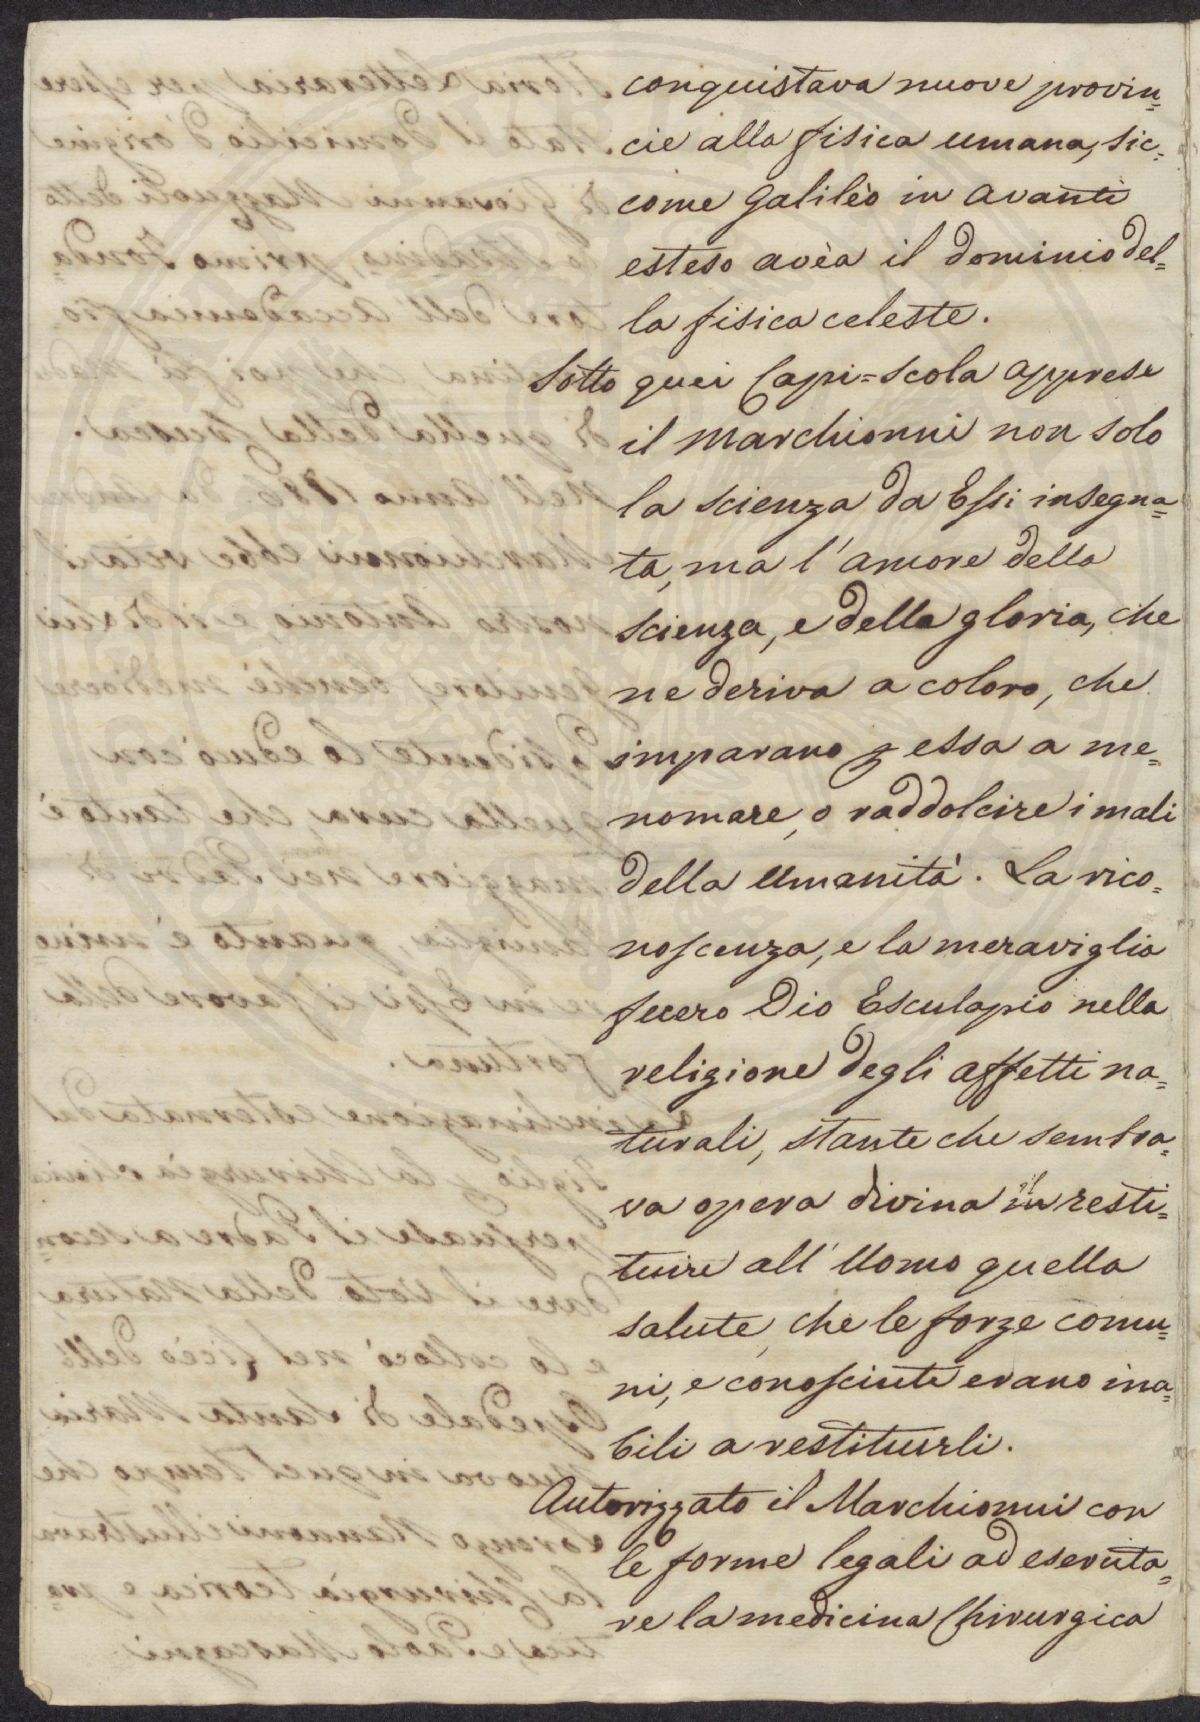 conquistava nuove provin=
cie alla fisica umana, sic=
come Galilèo in avanti
esteso avèa il dominio del=
la fisica celeste.
Sotto quei Capi=scola apprese
il Marchionni non solo
la scienza da Essi insegna=
ta, ma l'amore della
scienza, e della gloria, che
ne deriva a coloro, che
imparano p essa a me=
nomare, o raddolcire i mali
della Umanità. La rico=
noscenza, e la meraviglia
fecero Dio Esculapio nella
religione degli affetti na=
turali, stante che sembra=
va opera divina il resti=
tuire all'Uomo quella
salute, che le forze comu=
ni, e conosciute erano ina=
bili a restituirli.
Autorizzato il Marchionni con
le forme legali ad esercita=
re la medicina Chirurgica